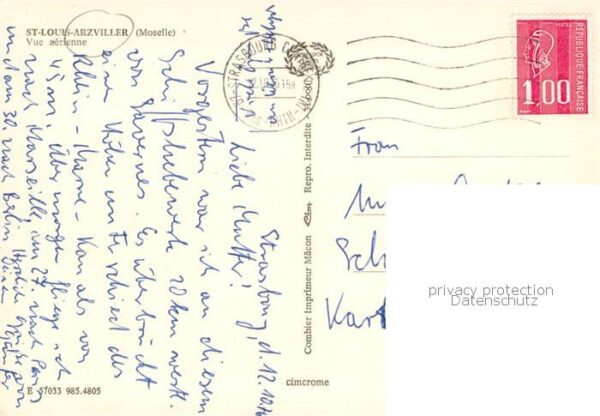 ST-LOUIS-ARZVILLER (Moselle)
Vue aérienne
Strasbourg, d. 12.10.76
Liebe Mutter!
Vorgestern war ich an diesem
Schiffshebewerk 20 km westl.
von Saverne. Es überbrückt
einen Höhenunterschied des
Rhein-Marne-Kanals von
45 m. Übermorgen fliege ich
nach Marseille, am 27. nach Paris
u. dann 30. nach Berlin. Herzliche Grüße von
E 57033 985.4805
Combier Imprimeur Mâcon
Repro. Interdite
cimcrome
STRASBOURG
POSTES
REPUBLIQUE FRANÇAISE
1,00
Frau
Sch
Kar
privacy protection
Datenschutz